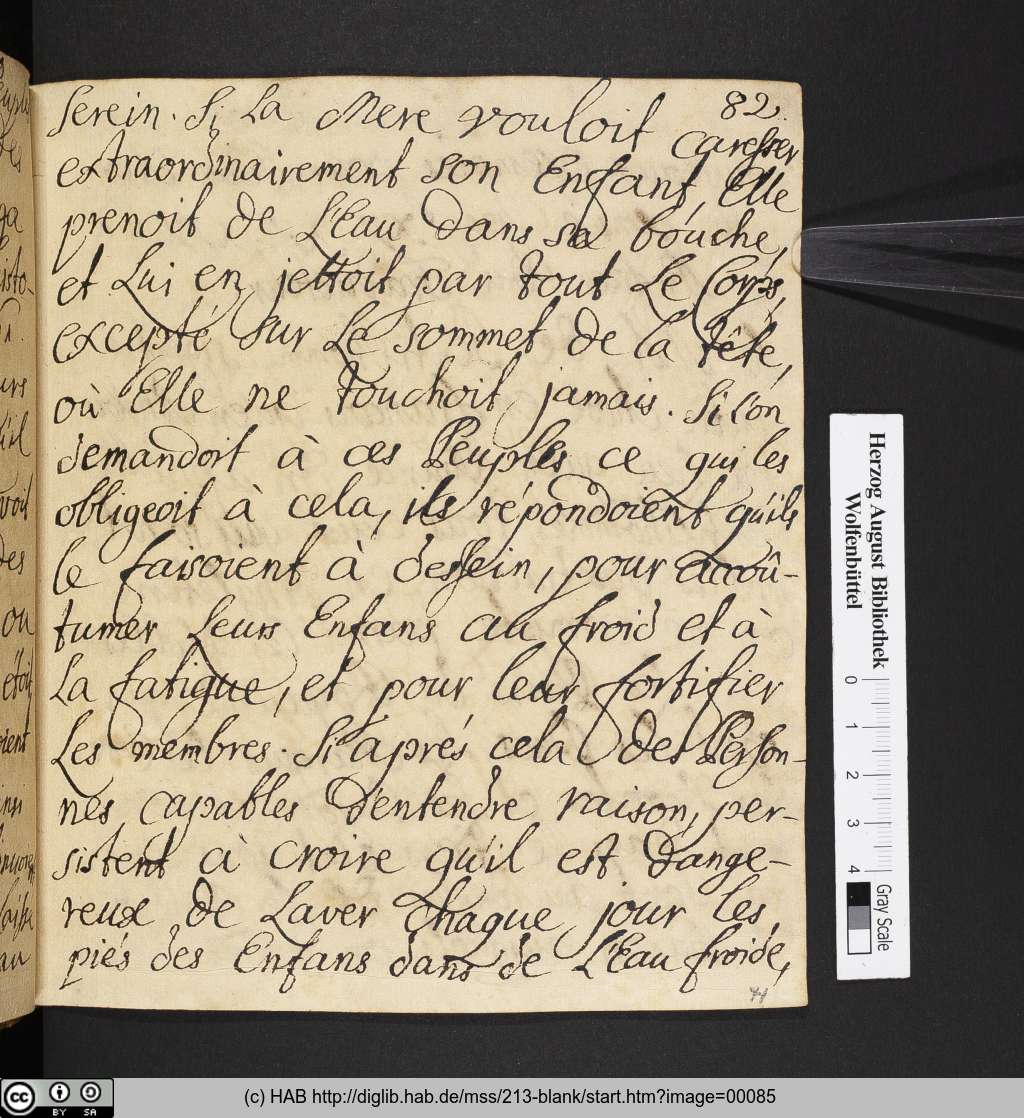 82.
serein. Si La Mere vouloit caresser
extraordinairement son Enfant, Elle
prenoit de L'Eau dans sa bouche,
et Lui en jettoit par tout Le Corps,
excepté sur Le sommet de la tête,
où Elle ne touchoit jamais. Si l'on
demandoit à ces Peuples ce qui les
obligeoit à cela, ils répondoient qu'ils
le faisoient à dessein, pour accoû-
tumer Leurs Enfans au froid et à
La fatigue, et pour leur fortifier
Les membres. Si aprés cela des Person-
nes capables d'entendre raison, per-
sistent à croire qu'il est dange-
reux de Laver chaque jour les
piés des Enfans dans de L'Eau froide,
Herzog August Bibliothek
Wolfenbüttel
0 1 2 3 4
Gray Scale
CC BY SA
(c) HAB http://diglib.hab.de/mss/213-blank/start.htm?image=00085